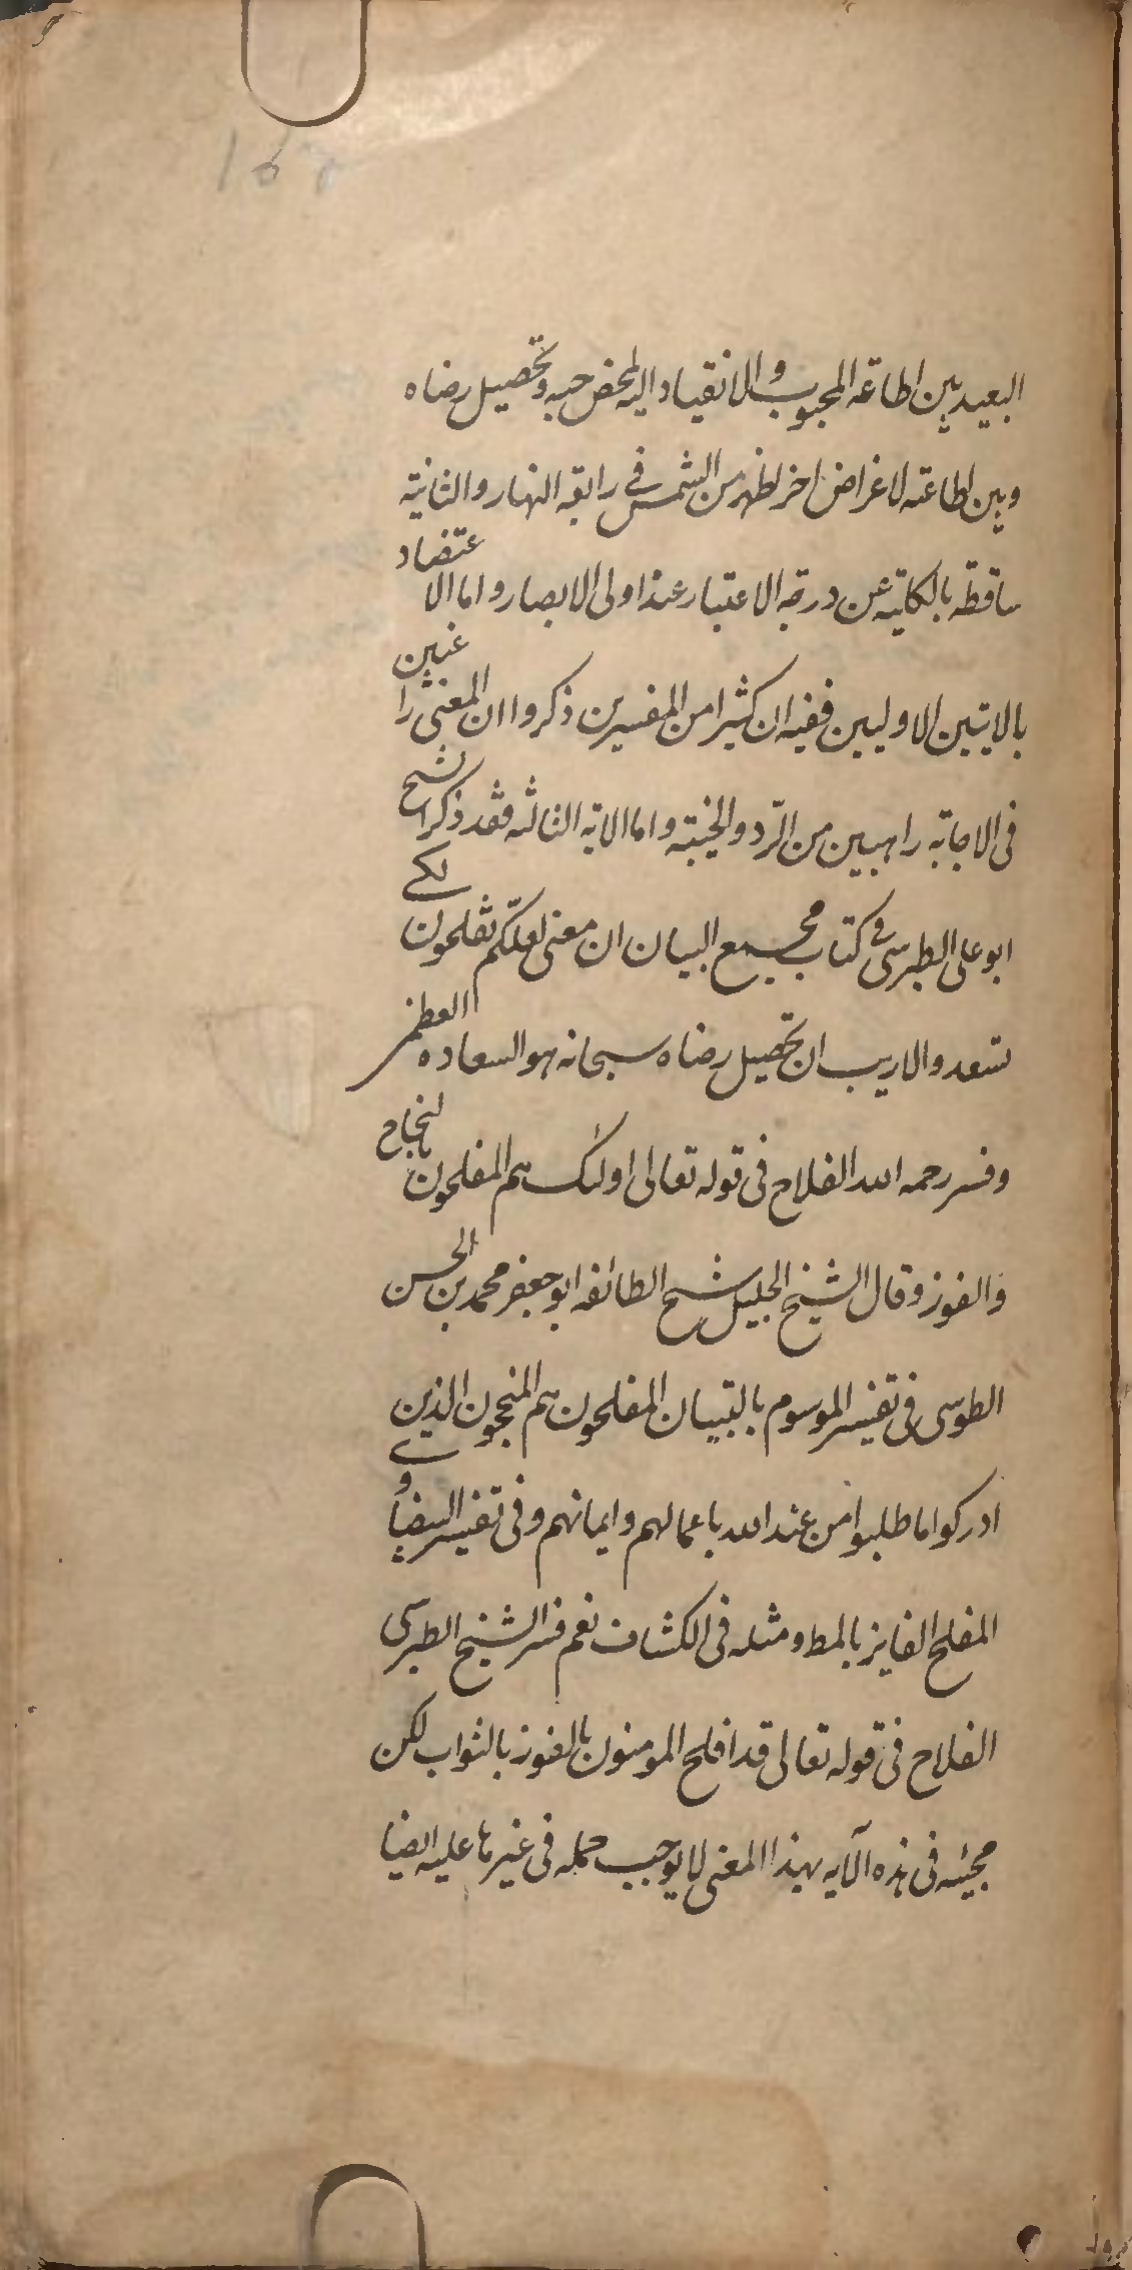 البعيد بين اطاعة المحبوب والانقياد اليه لمحض حبه وتحصيل رضاه
وبين اطاعته لاغراض اخر اظهر من الشمس في رابعة النهار والثانية
ساقطه بالكلية عن درجة الاعتبار عند اولى الابصار واما الاعتضاد
بالايتين الاوليين ففيه ان كثيرا من المفسيرين ذكروا ان المعنى راغبين
فى الاجابة راهبين من الرّد والخيبة واما الاية الثالثه فقد ذكر الشيخ
ابو على الطبرسى فى كتاب مجمع البيان ان معنى لعلّكم تفلحون لكي
تسعدوا ولاريب ان تحصيل رضاه سبحانه هو السعاده العظمى
وفسر رحمه الله الفلاح فى قوله تعالى اولئك هم المفلحون بالنجاح
والفوز وقال الشيخ الجليل شيخ الطائفه ابو جعفر محمد بن الحسن
الطوسى فى تفسير الموسوم بالتبيان المفلحون هم المنجحون الذين
ادركوا ما طلبوا من عند الله باعمالهم وايمانهم وفى تفسير البيضاوي
المفلح الفايز بالمط ومثله فى الكشاف نعم فسر الشيخ الطبرسى
الفلاح فى قوله تعالى قد افلح المومنون بالفوز بالثواب لكن
مجيئه فى هذه الآيه بهذا المعنى لا يوجب حمله فى غيرها عليه ايضا